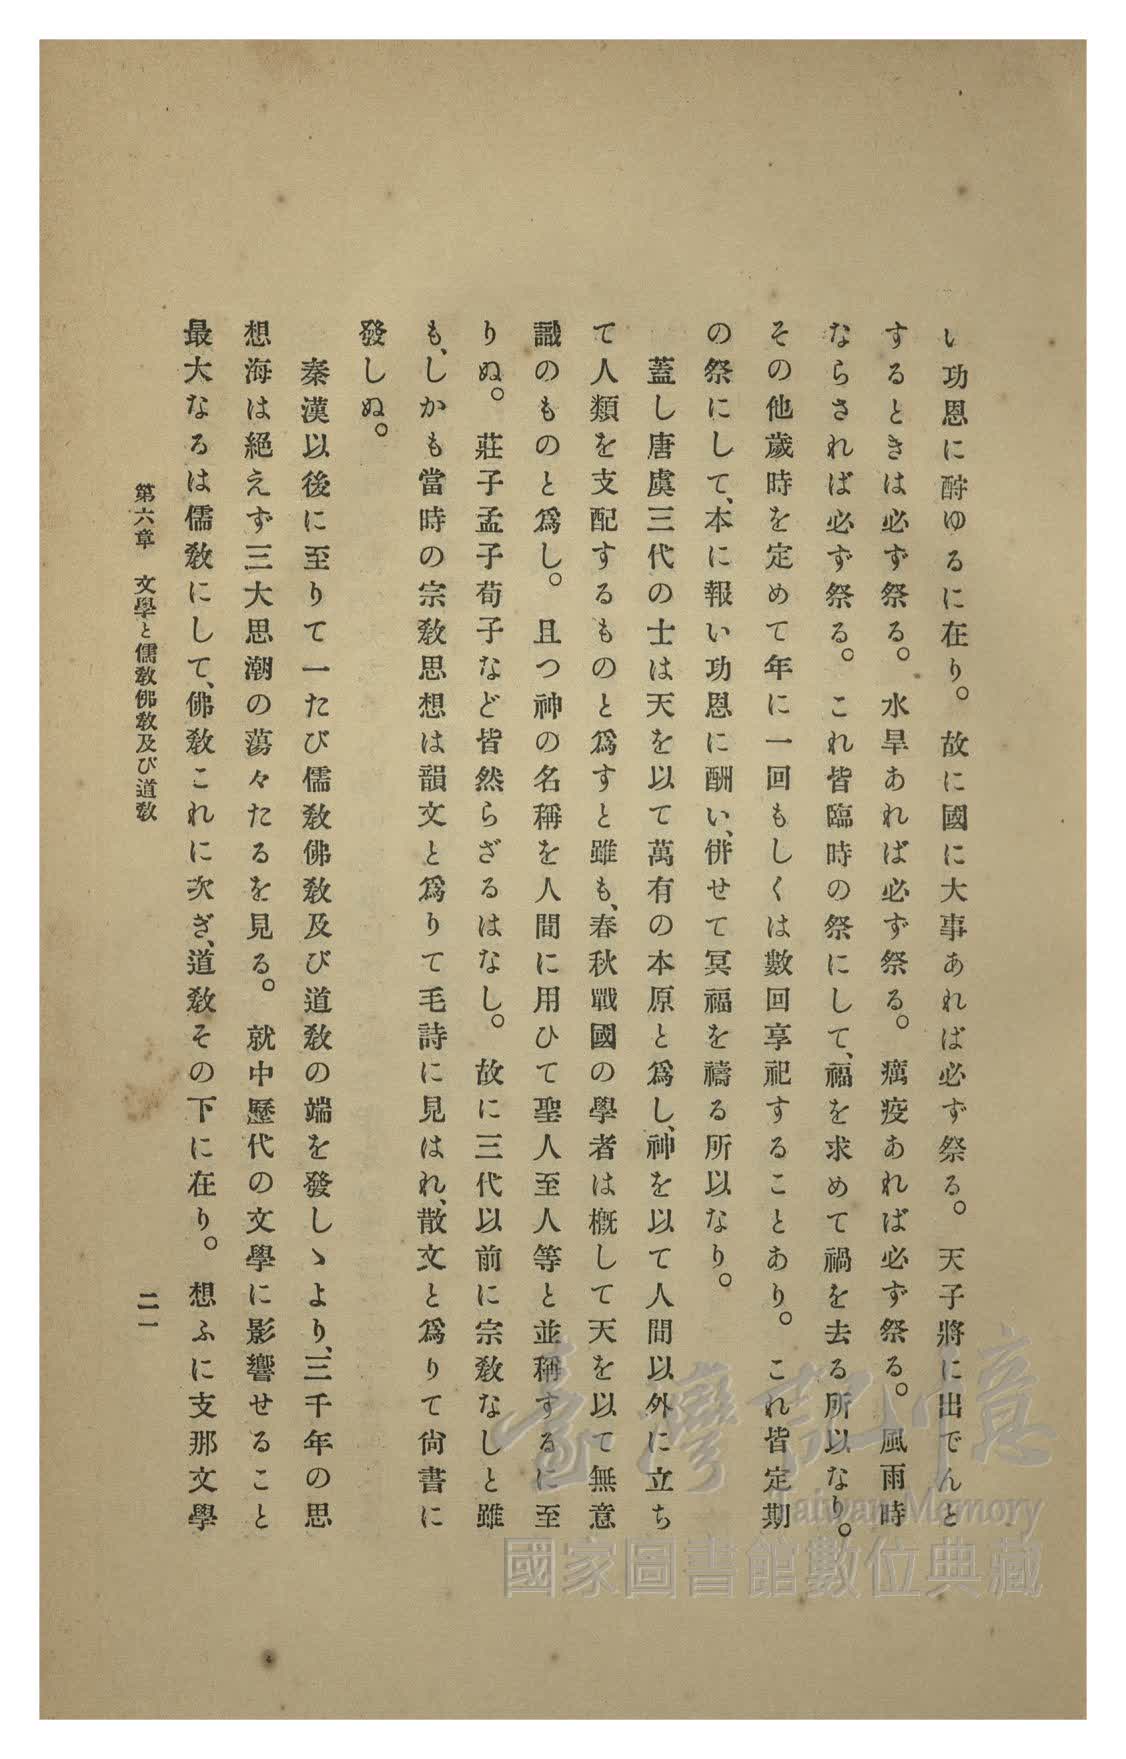 い功恩に酧ゆるに在り。故に國に大事あれば必ず祭る。天子將に出でんと
するときは必ず祭る。水旱あれば必ず祭る。癘疫あれば必ず祭る。風雨時
ならざれば必ず祭る。これ皆臨時の祭にして、福を求めて禍を去る所以なり。
その他歲時を定めて年に一回もしくは數回享祀することあり。これ皆定期
の祭にして、本に報い功恩に酬い、併せて冥福を禱る所以なり。
蓋し唐虞三代の士は天を以て萬有の本原と爲し、神を以て人間以外に立ち
て人類を支配するものと爲すと雖も、春秋戰國の學者は槪して天を以て無意
識のものと爲し。且つ神の名稱を人間に用ひて聖人至人等と並稱するに至
りぬ。莊子孟子荀子など皆然らざるはなし。故に三代以前に宗敎なしと雖
も、しかも當時の宗敎思想は韻文と爲りて毛詩に見はれ、散文と爲りて尙書に
發しぬ。
秦漢以後に至りて一たび儒敎佛敎及び道敎の端を發しゝより、三千年の思
想海は絕えず三大思潮の蕩々たるを見る。就中歷代の文學に影響せること
最大なるは儒敎にして、佛敎これに次ぎ、道敎その下に在り。想ふに支那文學
第六章 文學と儒敎佛敎及び道敎
二一
臺灣記憶
Taiwan Memory
國家圖書館數位典藏